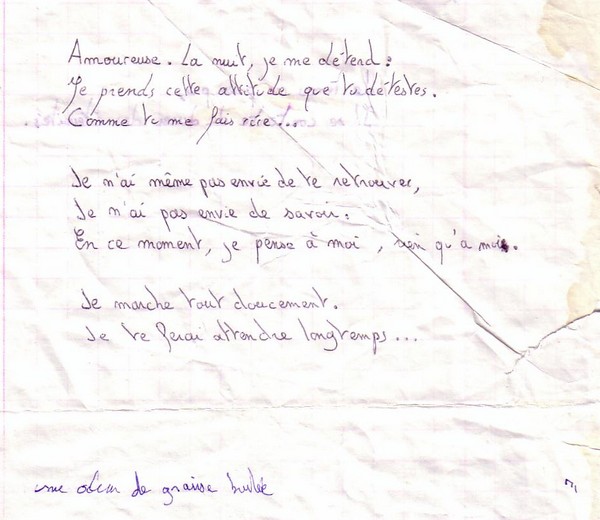 Amoureuse. La nuit, je me détend :
Je prends cette attitude que tu détestes.
Comme tu me fais rire...
Je n'ai même pas envie de te retrouver,
Je n'ai pas envie de savoir.
En ce moment, je pense à moi, rien qu'à moi.
Je marche tout doucement.
Je te ferai attendre longtemps...
une odeur de graisse brulée